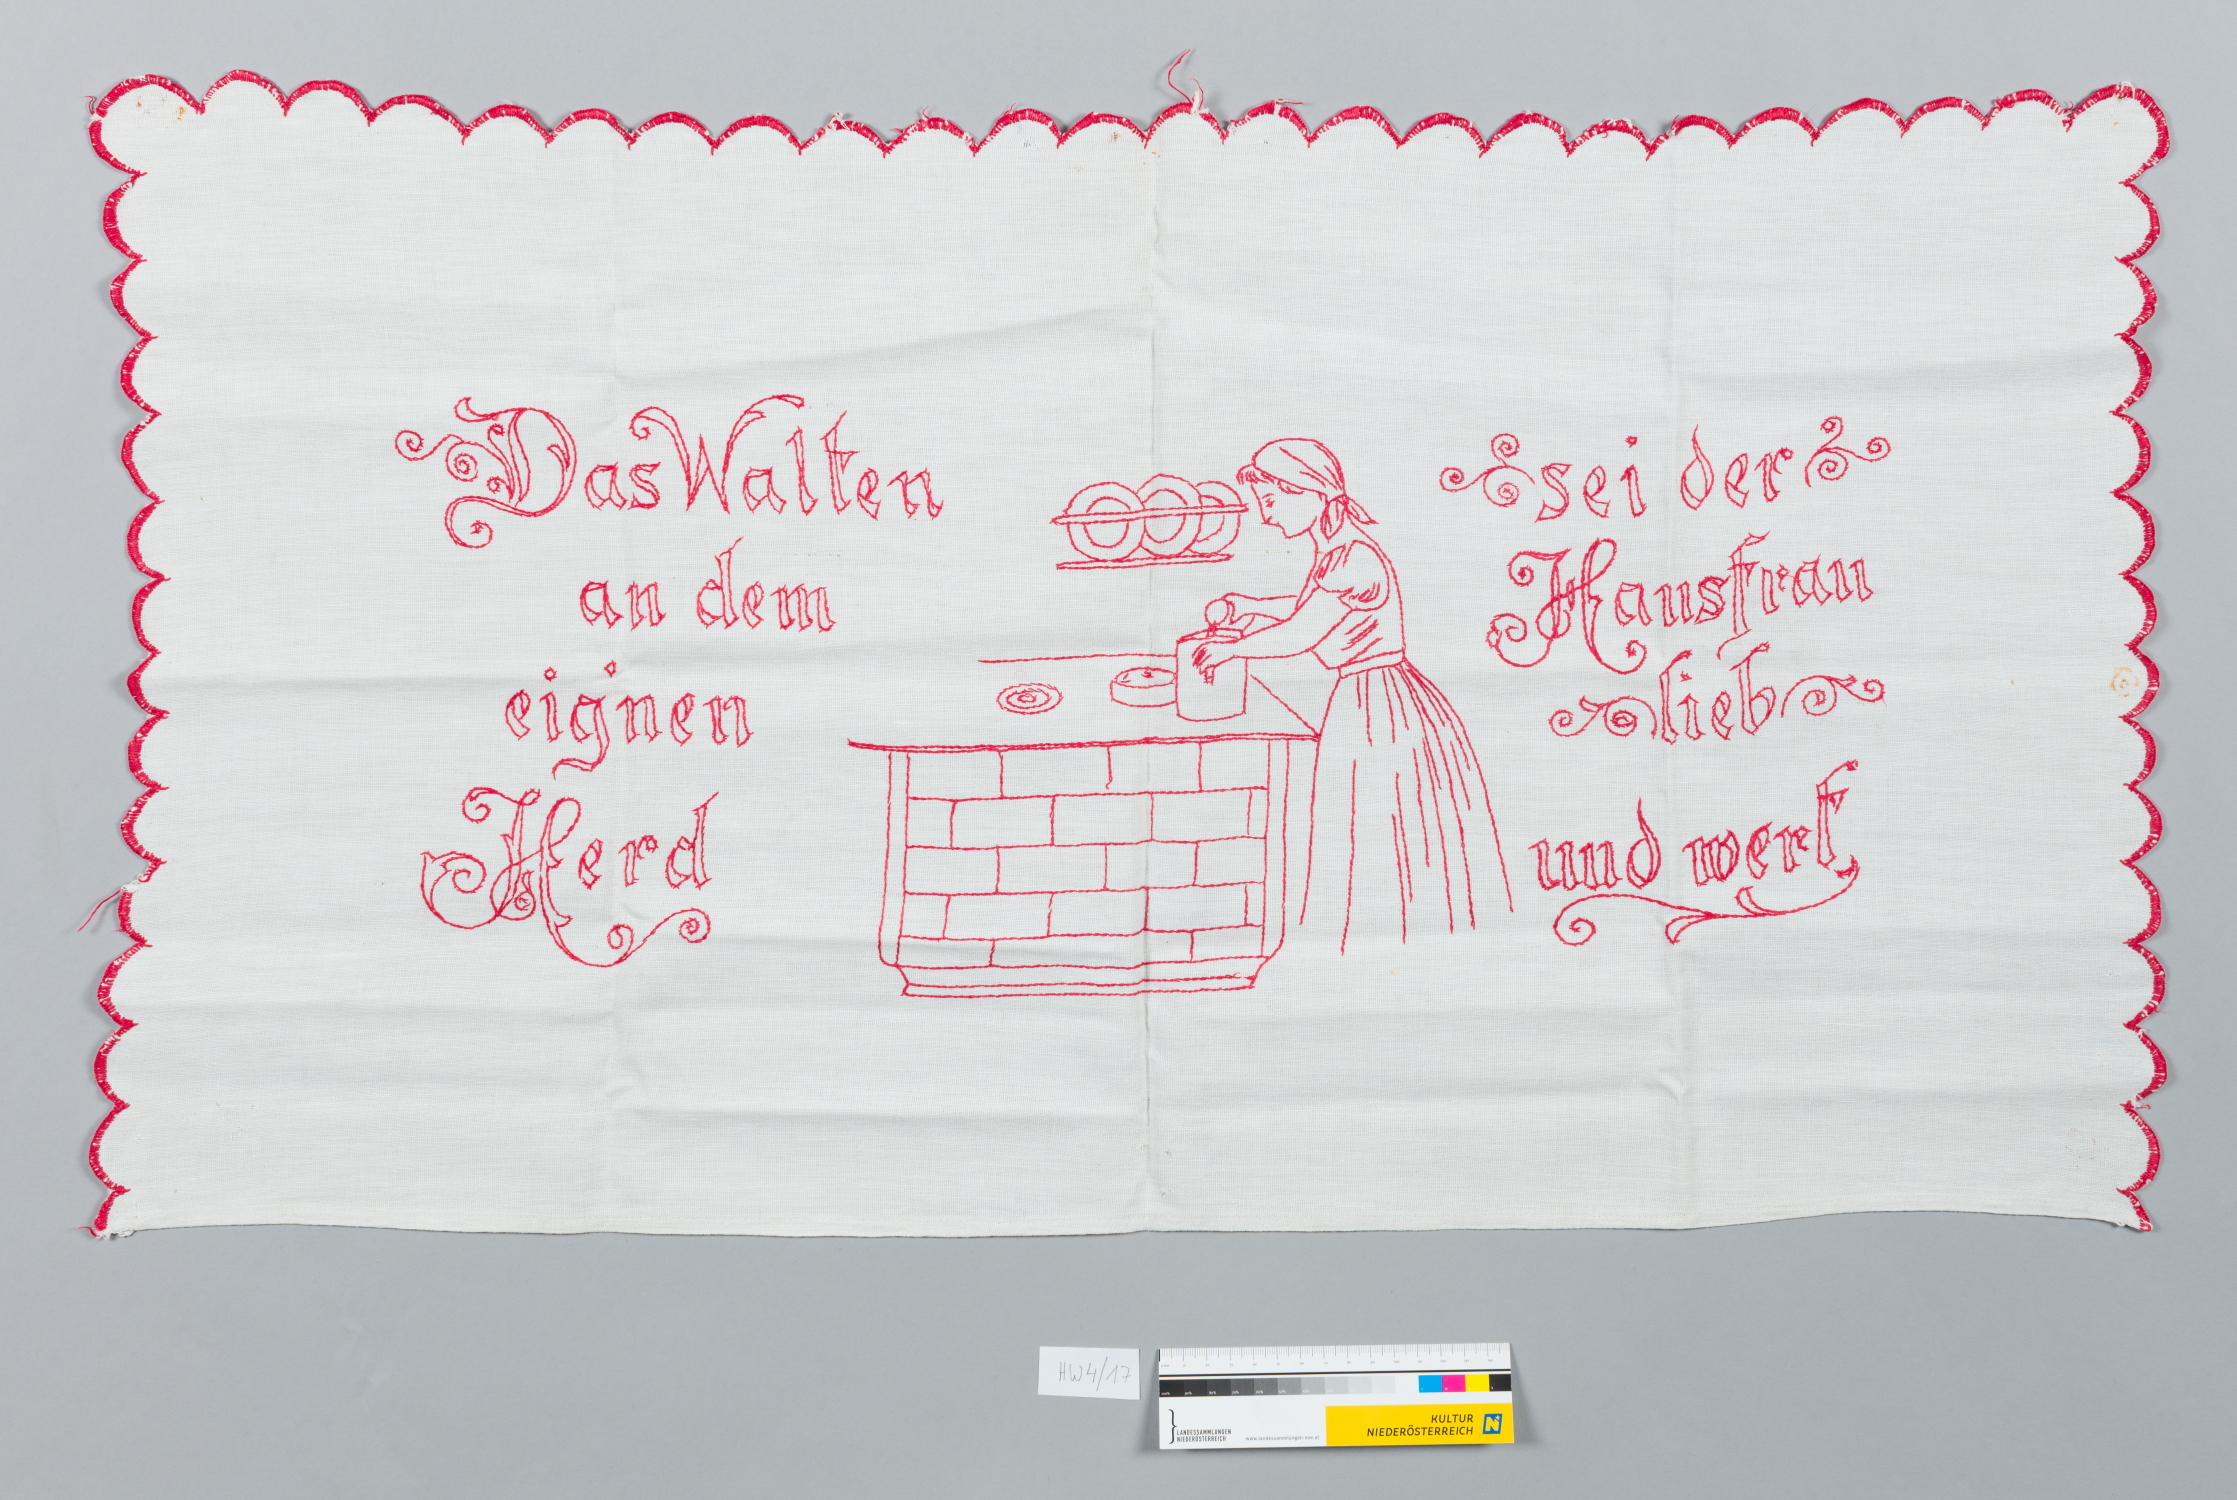 Das Walten
an dem
eignen
Herd
sei der
Hausfrau
lieb
und wert
HW4/17
LANDESSAMMLUNGEN
NIEDERÖSTERREICH
www.landessammlungen-noe.at
KULTUR
NIEDERÖSTERREICH
N